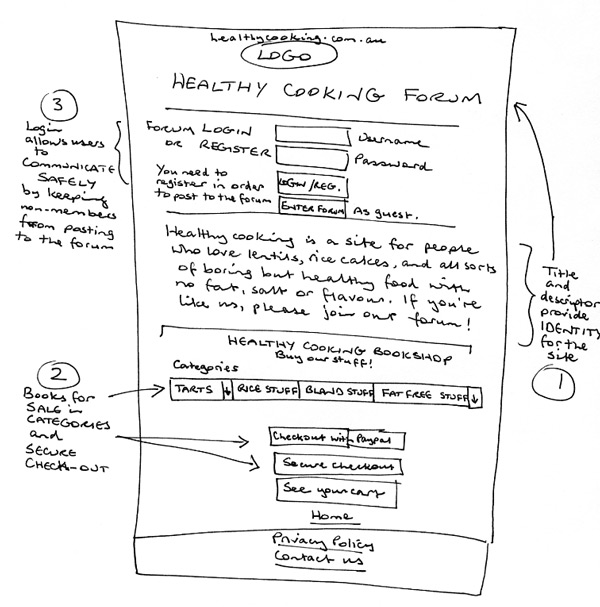 healthycooking.com.au
LOGO
HEALTHY COOKING FORUM
FORUM LOGIN
OR REGISTER
Username
Password
You need to
register in order
to post to the forum
LOGIN/REG.
ENTER FORUM
As guest.
Healthy cooking is a site for people
who love lentils, rice cakes, and all sorts
of boring but healthy food with
no fat, salt or flavour. If you're
like us, please join our forum!
HEALTHY COOKING BOOKSHOP
Buy our stuff!
Categories
TARTS
RICE STUFF
BLAND STUFF
FAT FREE STUFF
Checkout with Paypal
Secure checkout
See your cart
Home
Privacy Policy
Contact us
3
Login
allows users
to
COMMUNICATE
SAFELY
by keeping
non-members
from posting
to the forum
2
Books for
SALE in
CATEGORIES
and
SECURE
CHECK-OUT
Title
and
descriptor
provide
IDENTITY
for the
site
1